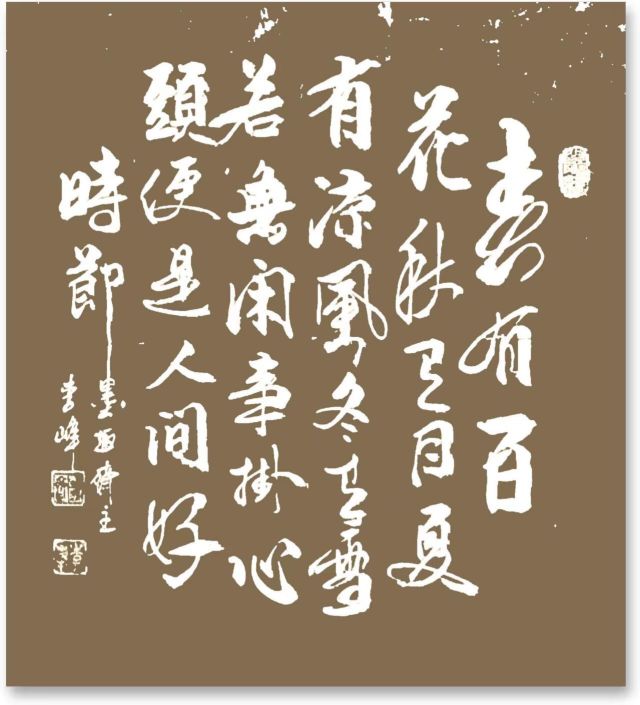 春有百
花秋有月夏
有凉風冬有雪
若無闲事掛心
頭便是人間好
時節
墨齋主
李峰